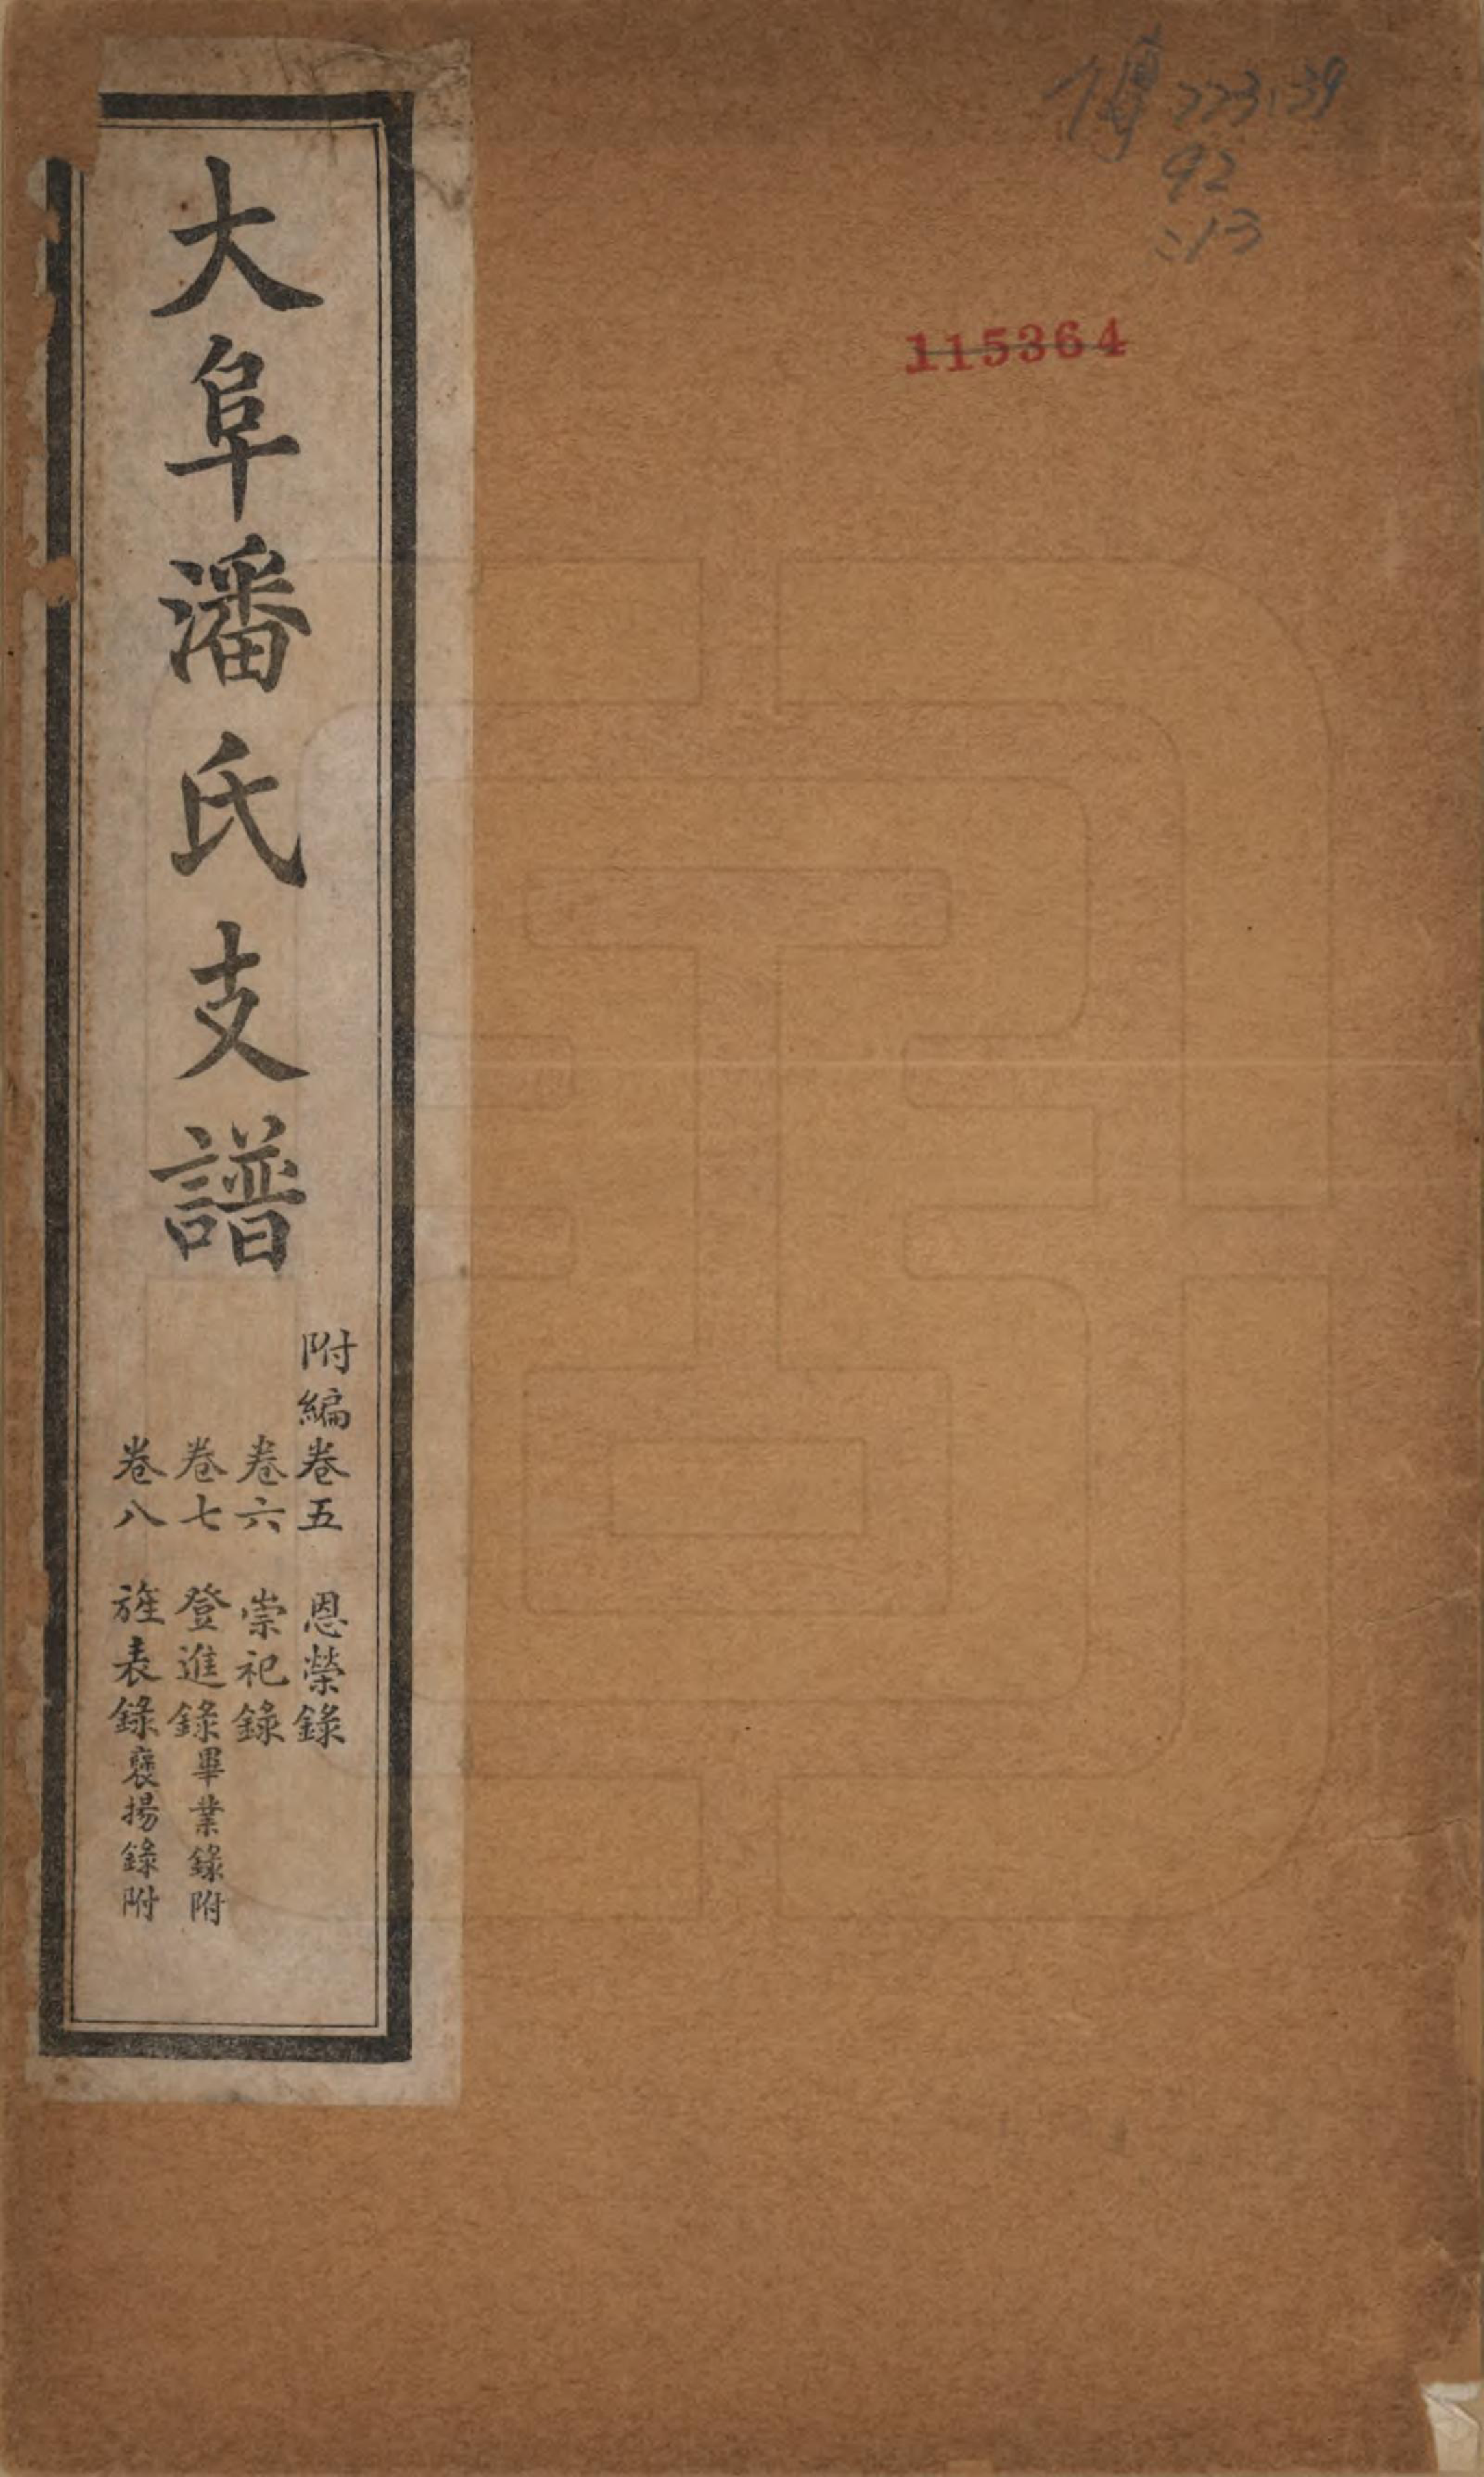 大阜潘氏支譜
附編卷五　恩榮錄
卷六　崇祀錄
卷七　登進錄畢業錄附
卷八　旌表錄褒揚錄附
傳 223.39
92
:13
115364